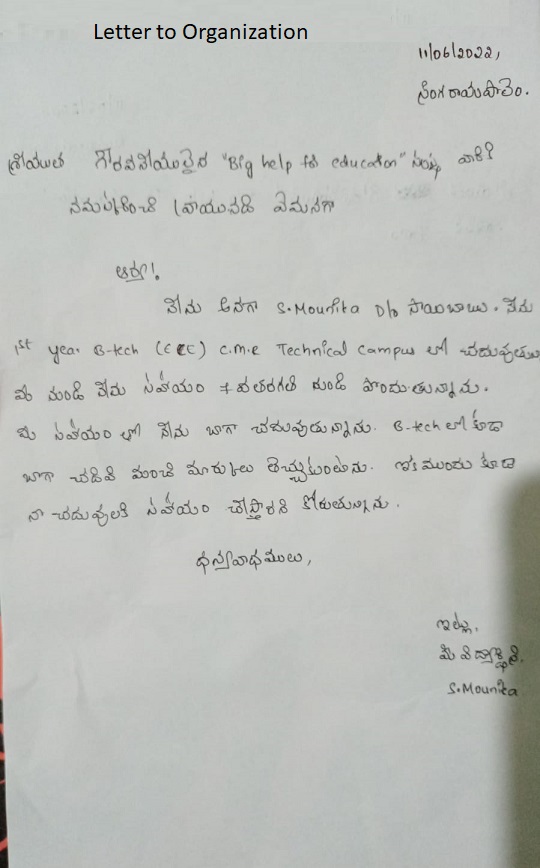 Letter to Organization
11/06/2022,
సింగరాయపాలెం.
శ్రీయుత గౌరవనీయులైన "Big help for education" సంస్థ వారికి
నమస్కరించి వ్రాయునది ఏమనగా
ఆర్యా!
నేను అనగా S.Mounika D/o సాయిబాబు. నేను
1st year B-tech (ECE) C.M.R Technical Campus లో చదువుతున్నాను
మీ నుండి నేను సహాయం 7వతరగతి నుండి పొందుతున్నాను.
మీ సహాయం తో నేను బాగా చదువుతున్నాను. B-tech లో కూడా
బాగా చదివి మంచి మార్కులు తెచ్చుకుంటాను. ఇక ముందు కూడా
నా చదువులకి సహాయం చేస్తారని కోరుతున్నాను.
ధన్యవాధములు,
ఇట్లు,
మీ విద్యార్థిని,
S.Mounika